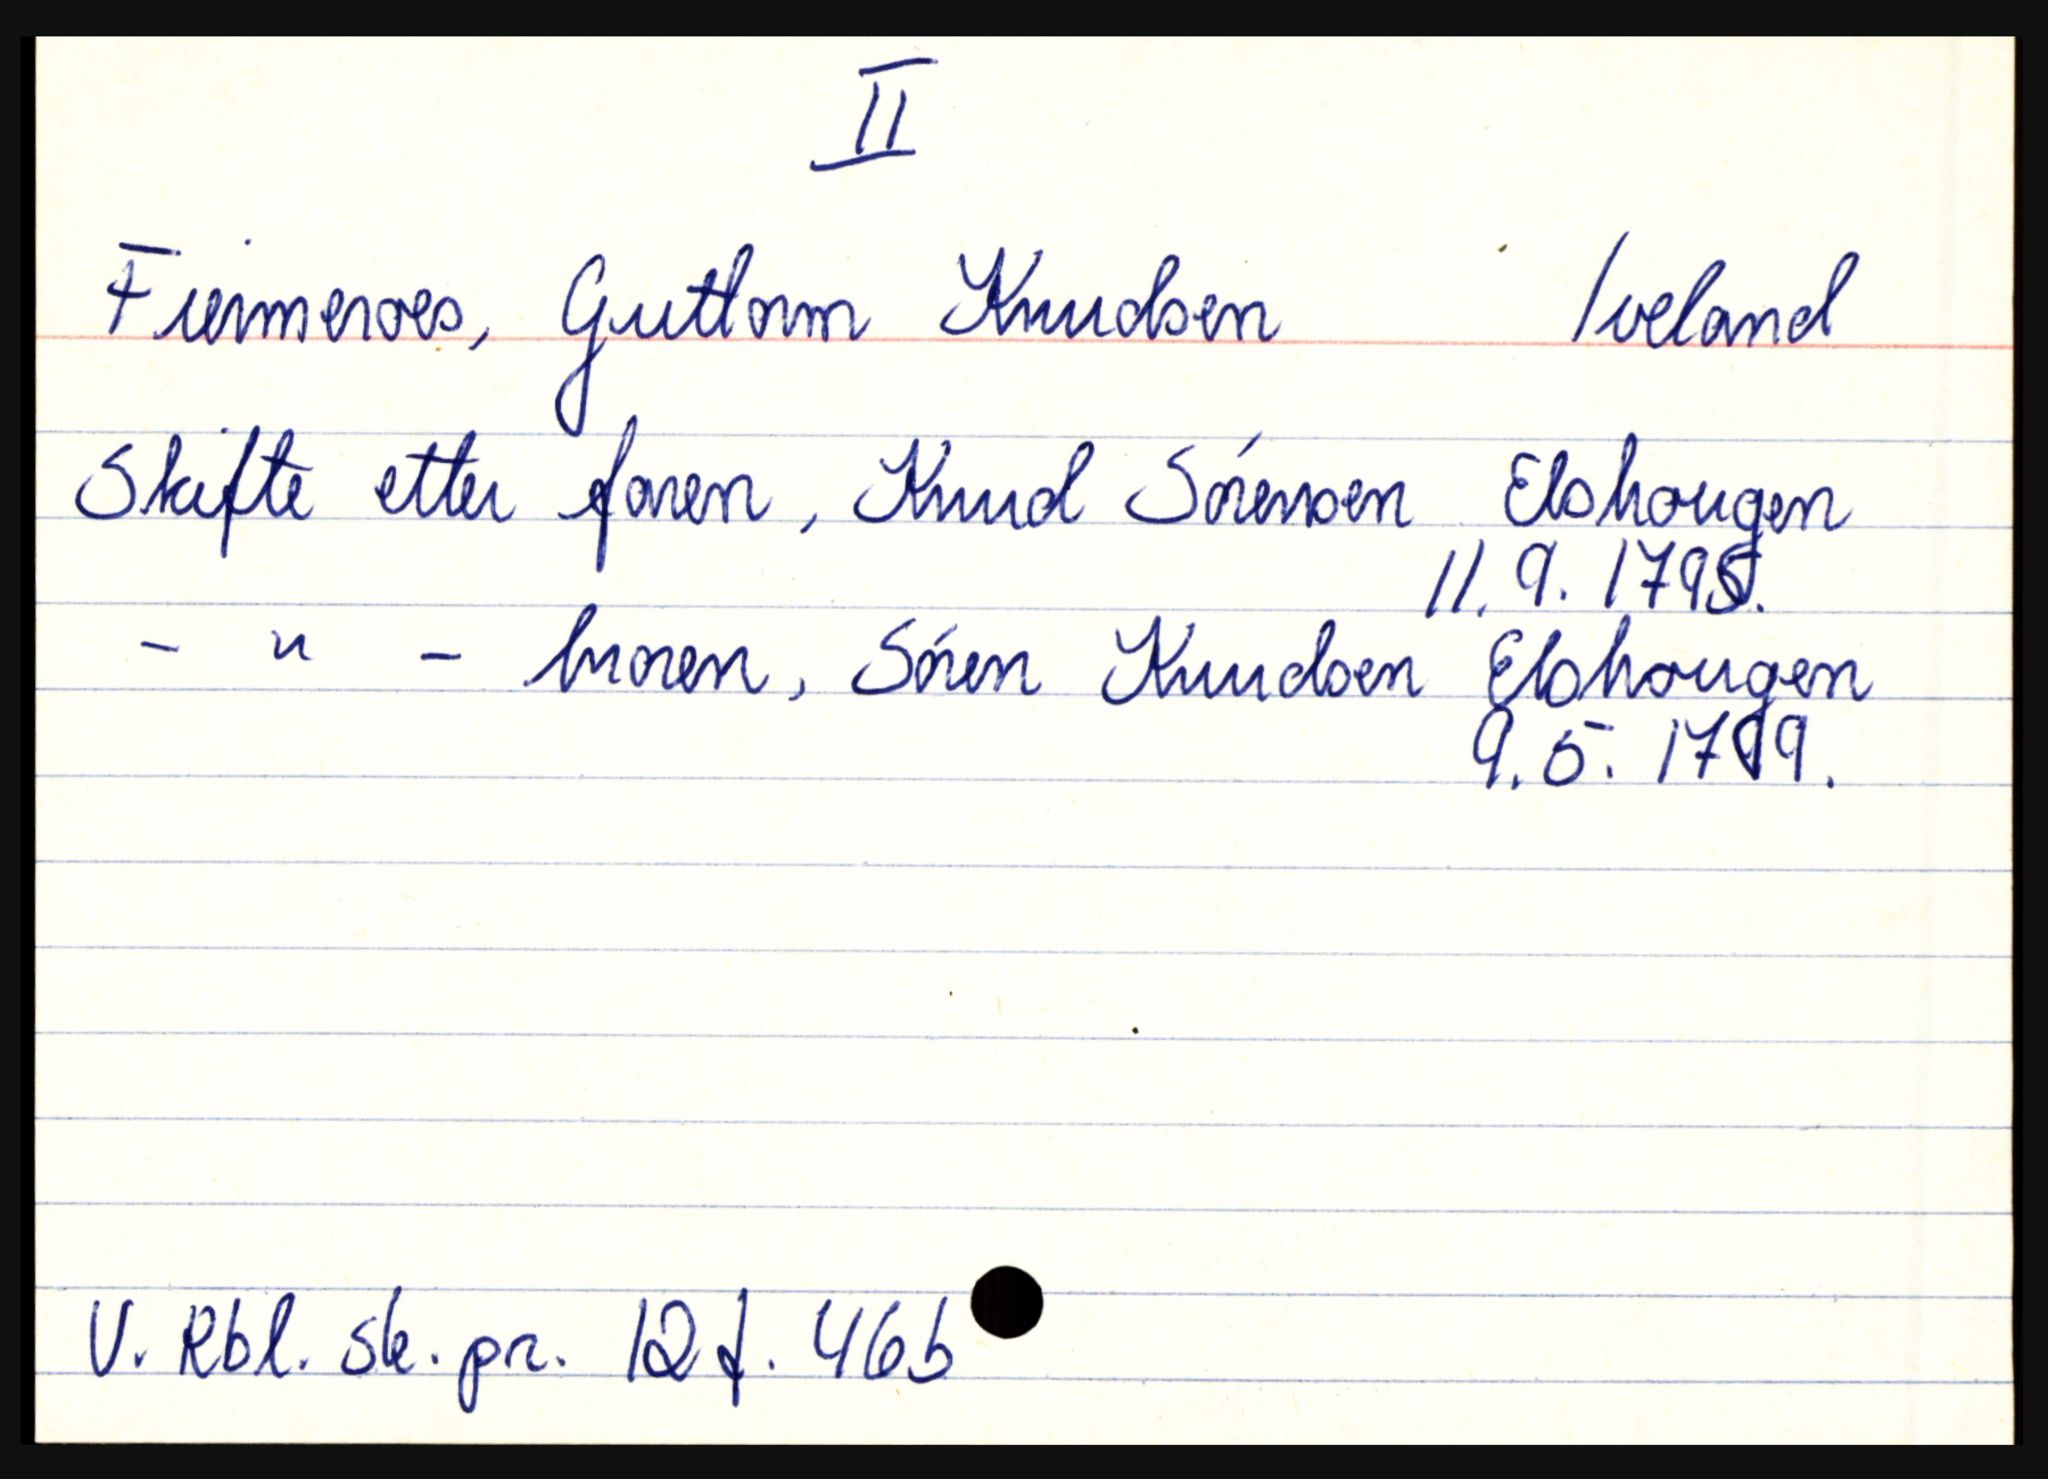 II
Fiermeroes, Guttorm Knudsen Iveland
Skifte etter faren, Knud Sórensen Elshougen
11. 9. 1795.
- " - broren, Sóren Knudsen Elshougen
9. 5. 1799.
V. Rbl. sk. pr. 12 f. 46b